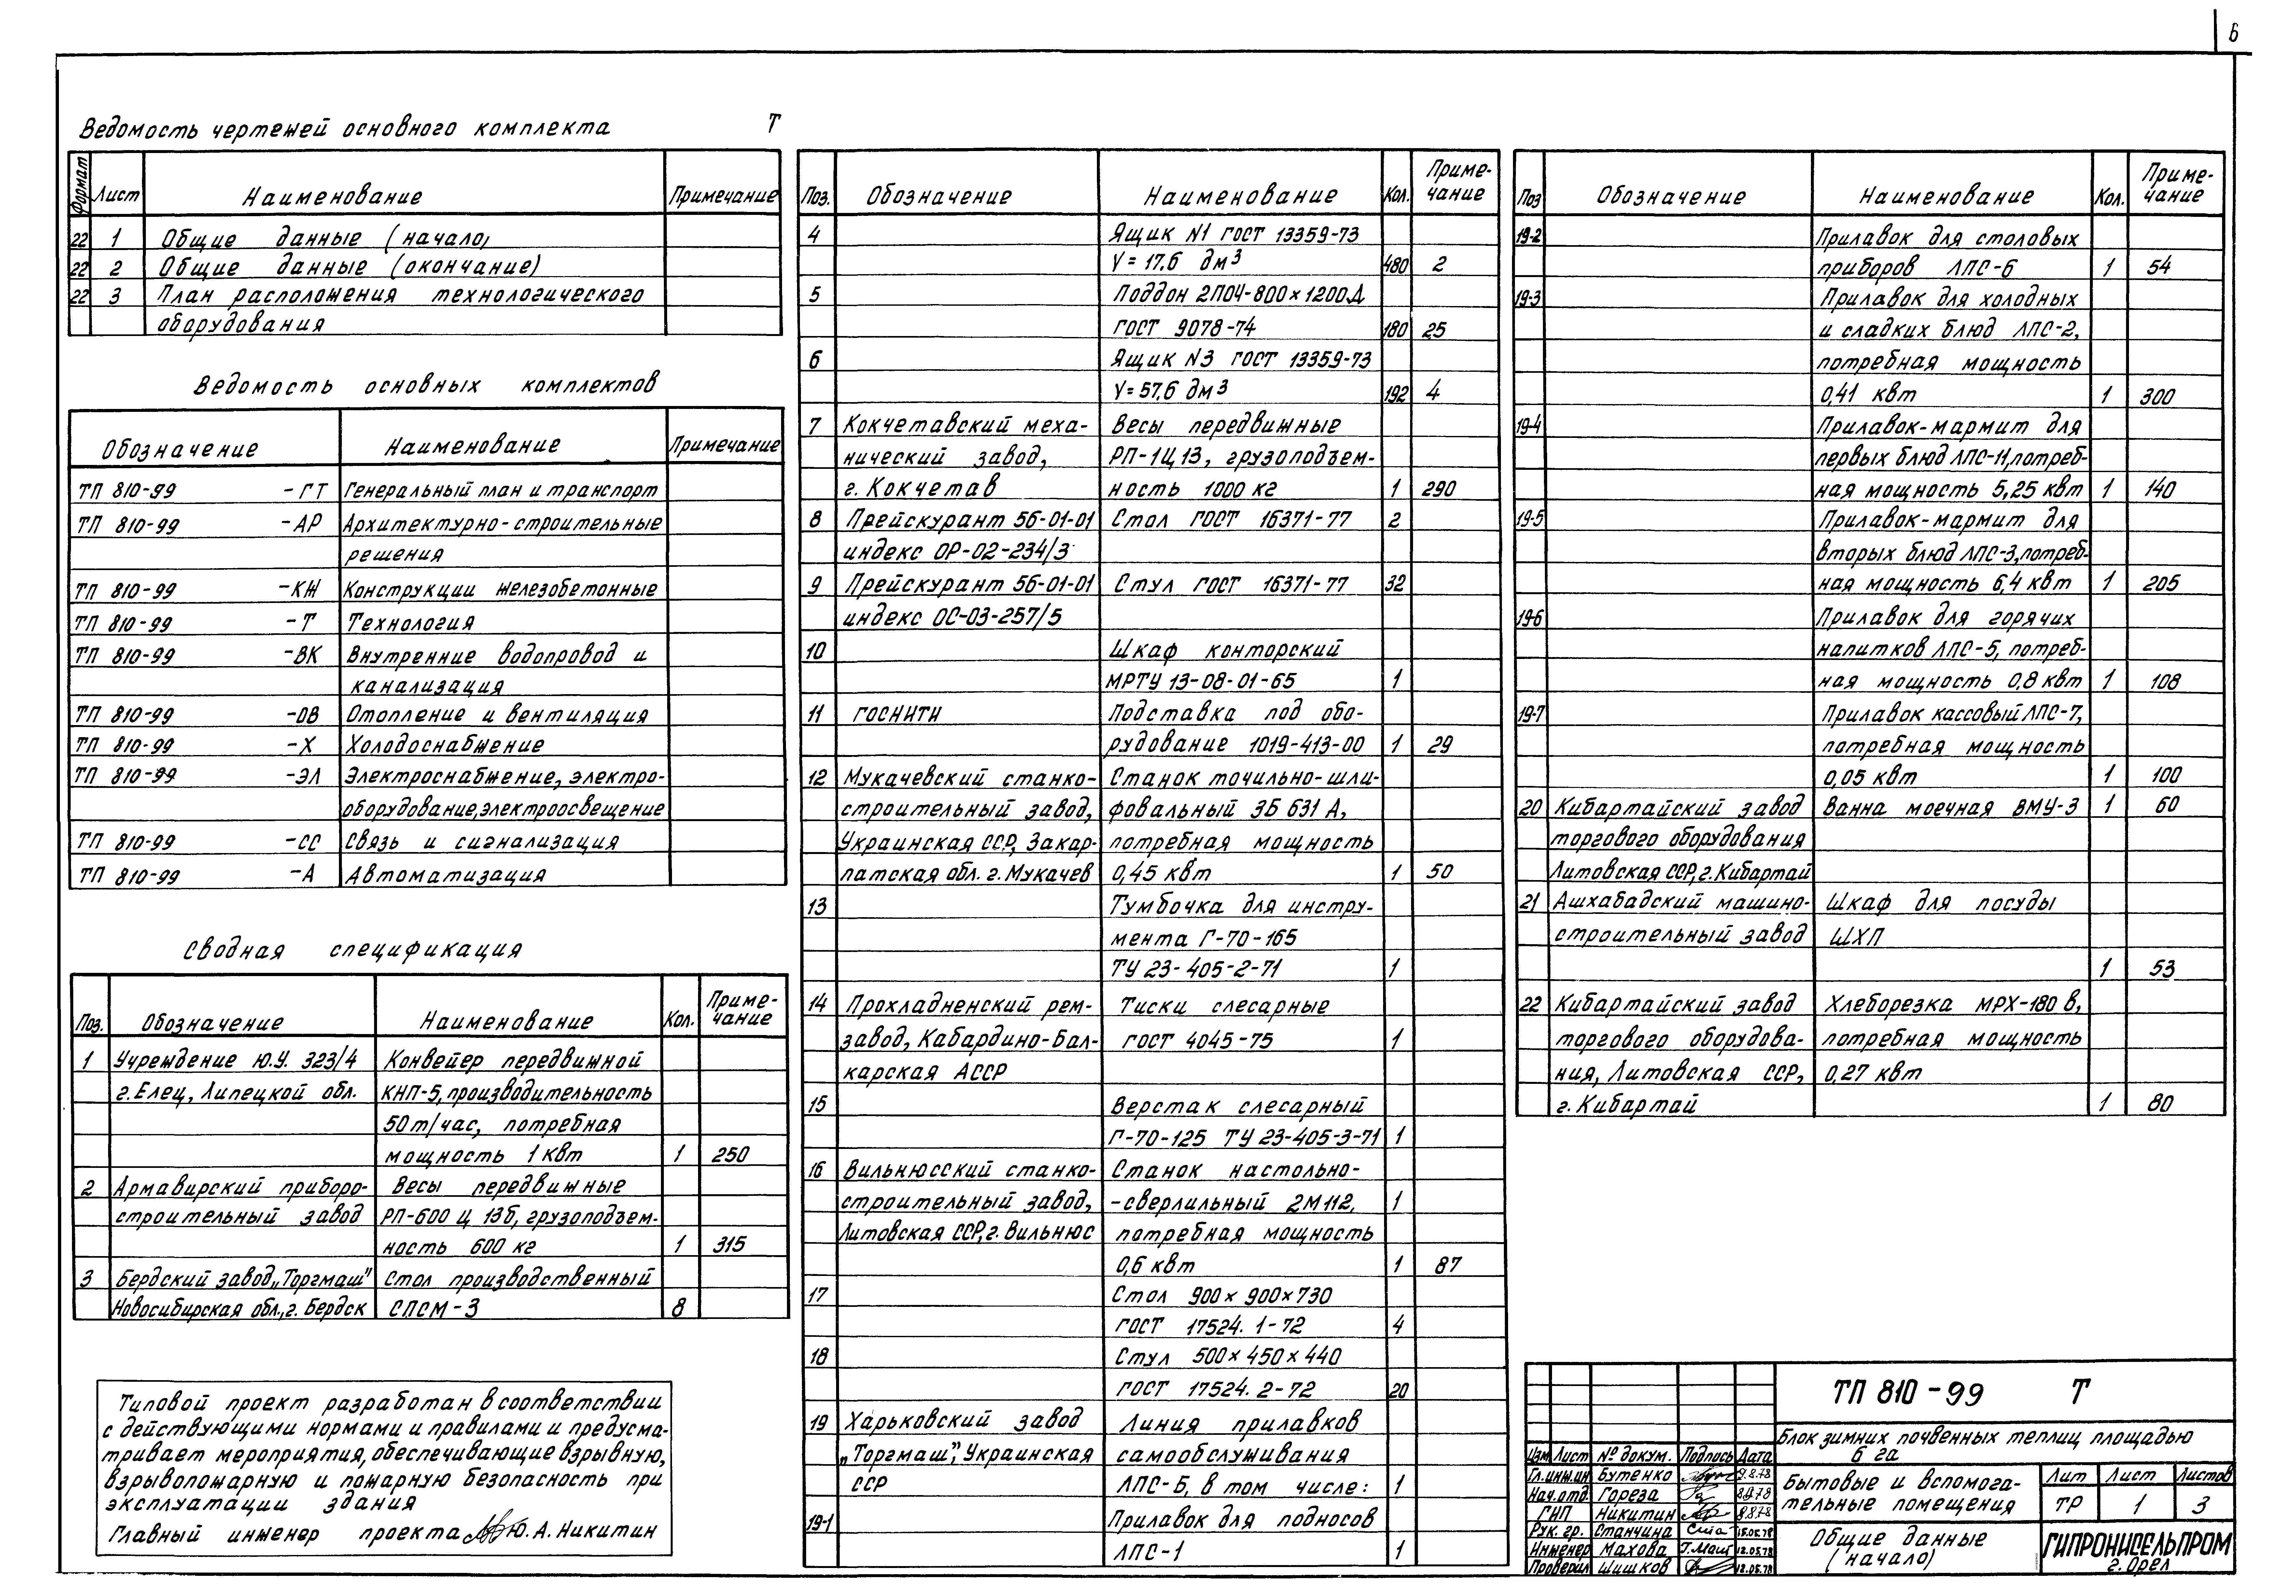 6
Ведомость чертежей основного комплекта Т
Формат Лист Наименование Примечание
22 1 Общие данные (начало)
22 2 Общие данные (окончание)
22 3 План расположения технологического
оборудования
Ведомость основных комплектов
Обозначение Наименование Примечание
ТП 810-99 -ГТ Генеральный план и транспорт
ТП 810-99 -АР Архитектурно-строительные
решения
ТП 810-99 -КЖ Конструкции железобетонные
ТП 810-99 -Т Технология
ТП 810-99 -ВК Внутренние водопровод и
канализация
ТП 810-99 -ОВ Отопление и вентиляция
ТП 810-99 -Х Холодоснабжение
ТП 810-99 -ЭЛ Электроснабжение, электро-
оборудование, электроосвещение
ТП 810-99 -СС Связь и сигнализация
ТП 810-99 -А Автоматизация
Сводная спецификация
Поз. Обозначение Наименование Кол. Приме-
чание
1 Учреждение Ю.У. 323/4 Конвейер передвижной
г. Елец, Липецкой обл. КНП-5, производительность
50т/час, потребная
мощность 1 квт 1 250
2 Армавирский приборо- Весы передвижные
строительный завод РП-600 Ц 13б, грузоподъем-
ность 600 кг 1 315
3 Бердский завод „Торгмаш" Стол производственный
Новосибирская обл., г. Бердск СПСМ-3 8
Типовой проект разработан в соответствии
с действующими нормами и правилами и предусма-
тривает мероприятия, обеспечивающие взрывную,
взрывопожарную и пожарную безопасность при
эксплуатации здания
Главный инженер проекта Ю. А. Никитин
Поз. Обозначение Наименование Кол. Приме-
чание
4 Ящик N1 ГОСТ 13359-73
V = 17.6 дм3 480 2
5 Поддон 2ПОЧ-800×1200Д
ГОСТ 9078-74 180 25
6 Ящик N3 ГОСТ 13359-73
V = 57,6 дм3 192 4
7 Кокчетавский меха- Весы передвижные
нический завод, РП-1Ц13, грузоподъем-
г. Кокчетав ность 1000 кг 1 290
8 Прейскурант 56-01-01 Стол ГОСТ 16371-77 2
индекс ОР-02-234/3
9 Прейскурант 56-01-01 Стул ГОСТ 16371-77 32
индекс ОС-03-257/5
10 Шкаф конторский
МРТУ 13-08-01-65 1
11 ГОСНИТИ Подставка под обо-
рудование 1019-413-00 1 29
12 Мукачевский станко- Станок точильно-шли-
строительный завод, фовальный 3Б 631 А,
Украинская ССР, Закар- потребная мощность
патская обл. г. Мукачев 0,45 квт 1 50
13 Тумбочка для инстру-
мента Г-70-165
ТУ 23-405-2-71 1
14 Прохладненский рем- Тиски слесарные
завод, Кабардино-Бал- ГОСТ 4045-75 1
карская АССР
15 Верстак слесарный
Г-70-125 ТУ 23-405-3-71 1
16 Вильнюсский станко- Станок настольно-
строительный завод, -сверлильный 2М112, 1
Литовская ССР, г. Вильнюс потребная мощность
0,6 квт 1 87
17 Стол 900×900×730
ГОСТ 17524. 1-72 4
18 Стул 500×450×440
ГОСТ 17524. 2-72 20
19 Харьковский завод Линия прилавков
„Торгмаш", Украинская самообслуживания
ССР ЛПС-Б, в том числе: 1
19-1 Прилавок для подносов
ЛПС-1 1
Поз Обозначение Наименование Кол. Приме-
чание
19-2 Прилавок для столовых
приборов ЛПС-6 1 54
19-3 Прилавок для холодных
и сладких блюд ЛПС-2,
потребная мощность
0,41 квт 1 300
19-4 Прилавок-мармит для
первых блюд ЛПС-11, потреб-
ная мощность 5,25 квт 1 140
19-5 Прилавок-мармит для
вторых блюд ЛПС-3, потреб-
ная мощность 6,4 квт 1 205
19-6 Прилавок для горячих
напитков ЛПС-5, потреб-
ная мощность 0,8 квт 1 108
19-7 Прилавок кассовый ЛПС-7,
потребная мощность
0,05 квт 1 100
20 Кибартайский завод Ванна моечная ВМУ-3 1 60
торгового оборудования
Литовская ССР, г. Кибартай
21 Ашхабадский машино- Шкаф для посуды
строительный завод ШХП
1 53
22 Кибартайский завод Хлеборезка МРХ-180 в,
торгового оборудова- потребная мощность
ния, Литовская ССР, 0,27 квт
г. Кибартай 1 80
ТП 810-99 Т
Блок зимних почвенных теплиц площадью
6 га
Изм Лист № докум. Подпись Дата
Гл.инж.ин Бутенко 9.8.78
Нач.отд. Гореза
ГИП Никитин 9.8.78
Рук. гр. Станчина 15.05.78
Инженер Махова 12.05.78
Проверил Шишков 12.05.78
Бытовые и вспомога-
тельные помещения
Лит Лист Листов
ТР 1 3
Общие данные
(начало)
ГИПРОНИСЕЛЬПРОМ
г. Орел